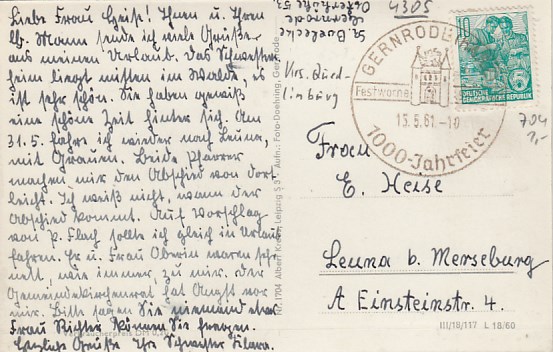 Liebe Frau Heise! Ihnen u. Ihrem
lb. Mann sende ich viele Grüße
aus meinem Urlaub. Das Schwestern
heim liegt mitten im Walde, es
ist sehr schön. Sie haben gewiß
eine schöne Zeit hinter sich. Am
31.5. fahre ich wieder nach Leuna,
mit Grauen. Beide Pfarrer
machen mir den Abschied von dort
leicht. Ich weiß nicht, wann der
Abschied kommt. Auf Vorschlag
von P. Flach sollte ich gleich in Urlaub
fahren. Er u. Frau Oberin waren sehr
nett, wie immer, zu mir. Der
Gemeindekirchenrat hat Angst vor
mir. Bitte sagen Sie niemand etw.
Frau Richter können Sie fragen.
Herzliche Grüße Ihre Schwester Klara.
Gernrode
Osterhöhe 53
Krs. Qued-
linburg
4305
GERNRODE/HARZ
Festwoche
15.5.61.-10
1000-Jahrfeier
10
DEUTSCHE
DEMOKRATISCHE REPUBLIK
704
1,-
Frau
E. Heise
Leuna b. Merseburg
A Einsteinstr. 4.
Nr. 1704 Albert Leipzig S 3 · Aufn.: Foto-Doehring, Gernrode
III/18/117 L 18/60